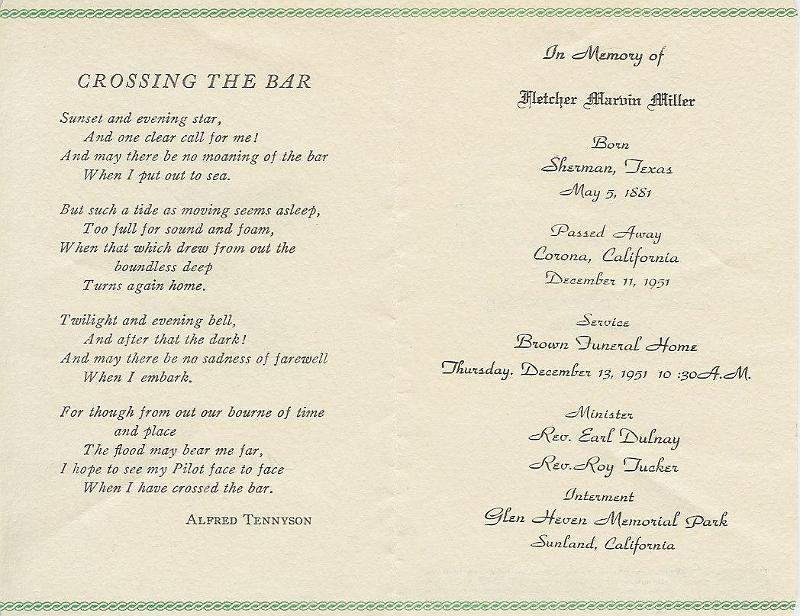 CROSSING THE BAR
Sunset and evening star,
And one clear call for me!
And may there be no moaning of the bar
When I put out to sea.
But such a tide as moving seems asleep,
Too full for sound and foam,
When that which drew from out the
boundless deep
Turns again home.
Twilight and evening bell,
And after that the dark!
And may there be no sadness of farewell
When I embark.
For though from out our bourne of time
and place
The flood may bear me far,
I hope to see my Pilot face to face
When I have crossed the bar.
ALFRED TENNYSON
In Memory of
Fletcher Marvin Miller
Born
Sherman, Texas
May 5, 1881
Passed Away
Corona, California
December 11, 1951
Service
Brown Funeral Home
Thursday. December 13, 1951 10 :30 A.M.
Minister
Rev. Earl Dulnay
Rev. Roy Tucker
Interment
Glen Heven Memorial Park
Sunland, California